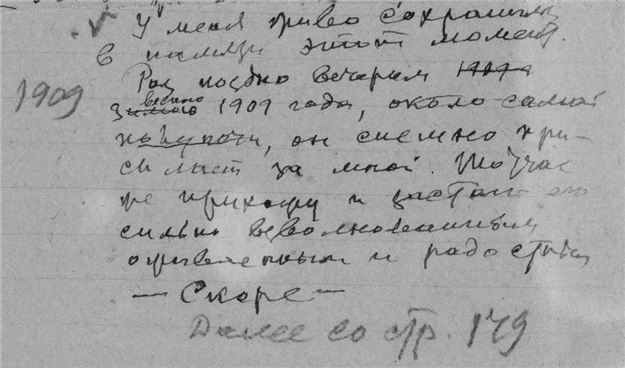 У меня живо сохранился
в памяти этот момент.
Раз поздно вечером 1909
1909
зимою весною 1909 года, около самой
полуночи, он спешно при-
сылает за мной. Тотчас
же прихожу и застаю его
сильно взволнованным
оживленным и радостным
— Скоре —
Далее со стр. 179